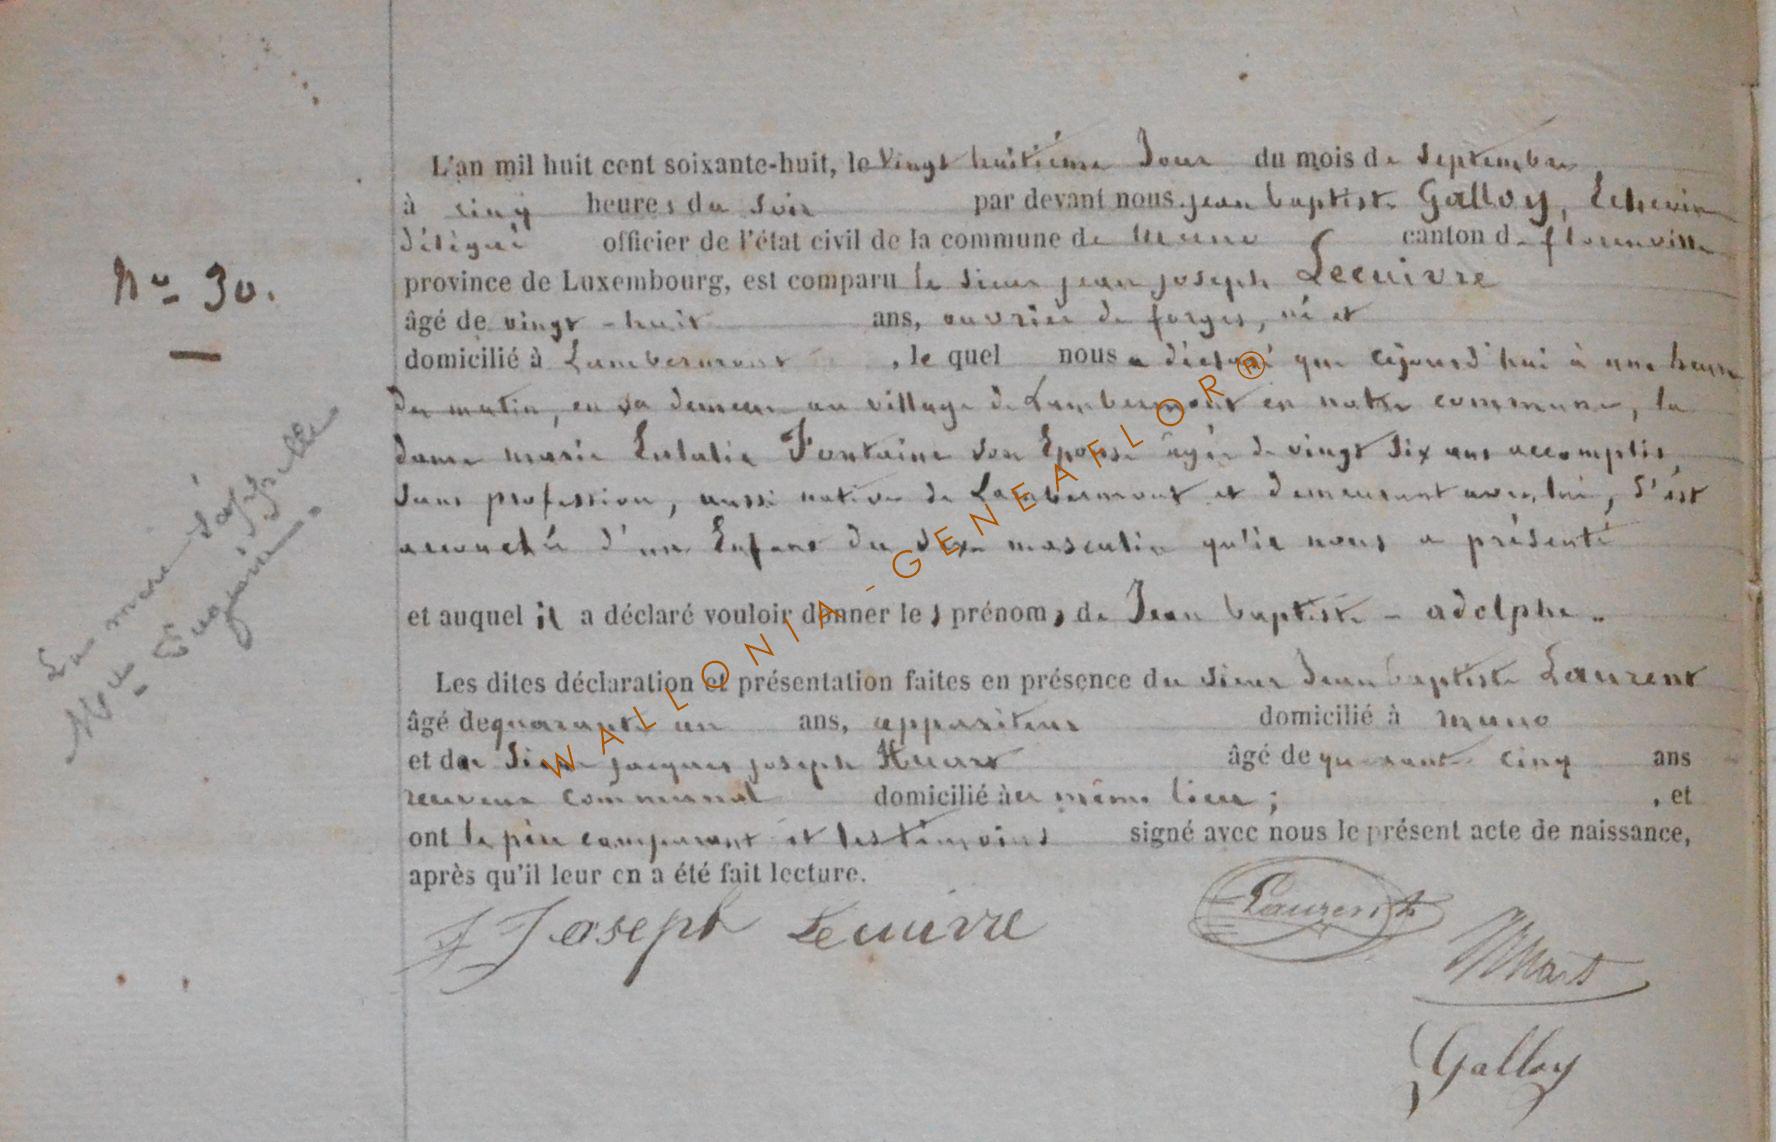 L'an mil huit cent soixante-huit, le vingt huitième Jour du mois de Septembre
à cinq heures du Soir par devant nous jean baptiste Galloy, Echevin
délégué officier de l'état civil de la commune de Muno canton de florenville
province de Luxembourg, est comparu le Sieur jean joseph Lecuivre
âgé de vingt-huit ans, ouvrier de forges, né et
domicilié à Lambermont, le quel nous a déclaré que cejourd'hui à une heure
du matin, en sa demeure au village de Lambermont en notre commune, la
dame marie Eulalie Fontaine son Epouse âgée de vingt Six ans accomplis,
Sans profession, aussi native de Lambermont et demeurant avec lui, S'est
accouchée d'un Enfant du Sexe masculin qu'il nous a présenté
et auquel il a déclaré vouloir donner les prénoms de Jean baptiste - adolphe.
Les dites déclaration et présentation faites en présence du Sieur Jean baptiste Laurent
âgé de quarante un ans, appariteur domicilié à muno
et du Sieur jacques joseph Huart âgé de quarante cinq ans
receveur communal domicilié au même lieu ; , et
ont le père comparant et les témoins signé avec nous le présent acte de naissance,
après qu'il leur en a été fait lecture.
J Joseph Lecuivre
Laurent
Huart
Galloy
No 30.
La mère s'appelle
Mie Eugénie.
WALLONIA-GENEAFLOR®